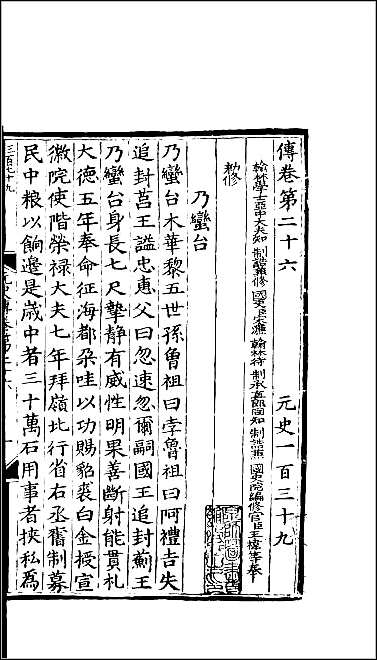 傳卷第二十六　元史一百三十九
翰林學士亞中大夫知制誥兼修國史臣宋濂翰林待制承直郎同知制誥兼國史院編修官臣王禕等奉
勑修
乃蠻台
乃蠻台木華黎五世孫曾祖曰孛魯祖曰阿禮吉失
追封莒王謚忠惠父曰忽速忽爾嗣國王追封薊王
乃蠻台身長七尺摯靜有威性明果善斷射能貫札
大德五年奉命征海都朶哇以功賜貂裘白金授宣
徽院使階榮祿大夫七年拜嶺北行省右丞舊制募
民中粮以餉邊是歲中者三十萬石用事者挾私爲
三百七十九
元史傳卷第二十六
一